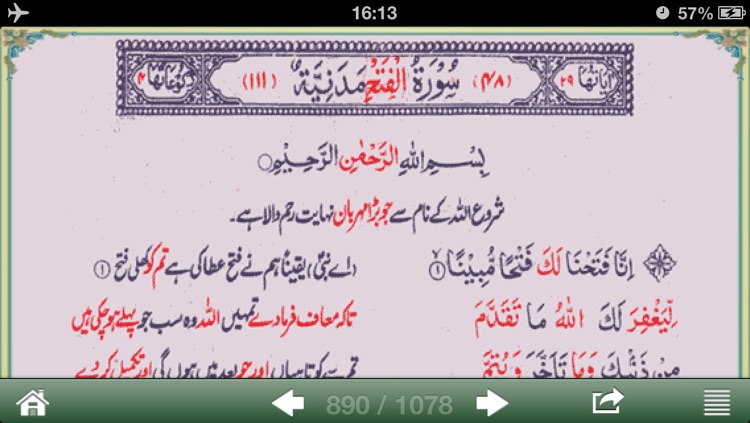 16:13 57%
اٰیَاتُھَا ٢٩ (٤٨) سُوْرَةُ الْفَتْحِ مَدَنِیَّةٌ (١١١) رُكُوْعَاتُھَا ٤
بِسْمِ اللهِ الرَّحْمٰنِ الرَّحِیْمِ
شروع اللہ کے نام سے جو بڑا مہربان نہایت رحم والا ہے۔
اِنَّا فَتَحْنَا لَكَ فَتْحًا مُّبِیْنًا ١ (اے نبیؐ) یقیناً ہم نے فتح عطا کی ہے تم کو کھلی فتح ١
لِّیَغْفِرَ لَكَ اللهُ مَا تَقَدَّمَ تاکہ معاف فرما دے تمہیں اللہ وہ سب جو پہلے ہو چکی ہیں
مِنْ ذَنْۢبِكَ وَمَا تَاَخَّرَ وَیُتِمَّ تم سے کوتاہیاں اور جو بعد میں ہوں گی اور تکمیل کر دے
890 / 1078